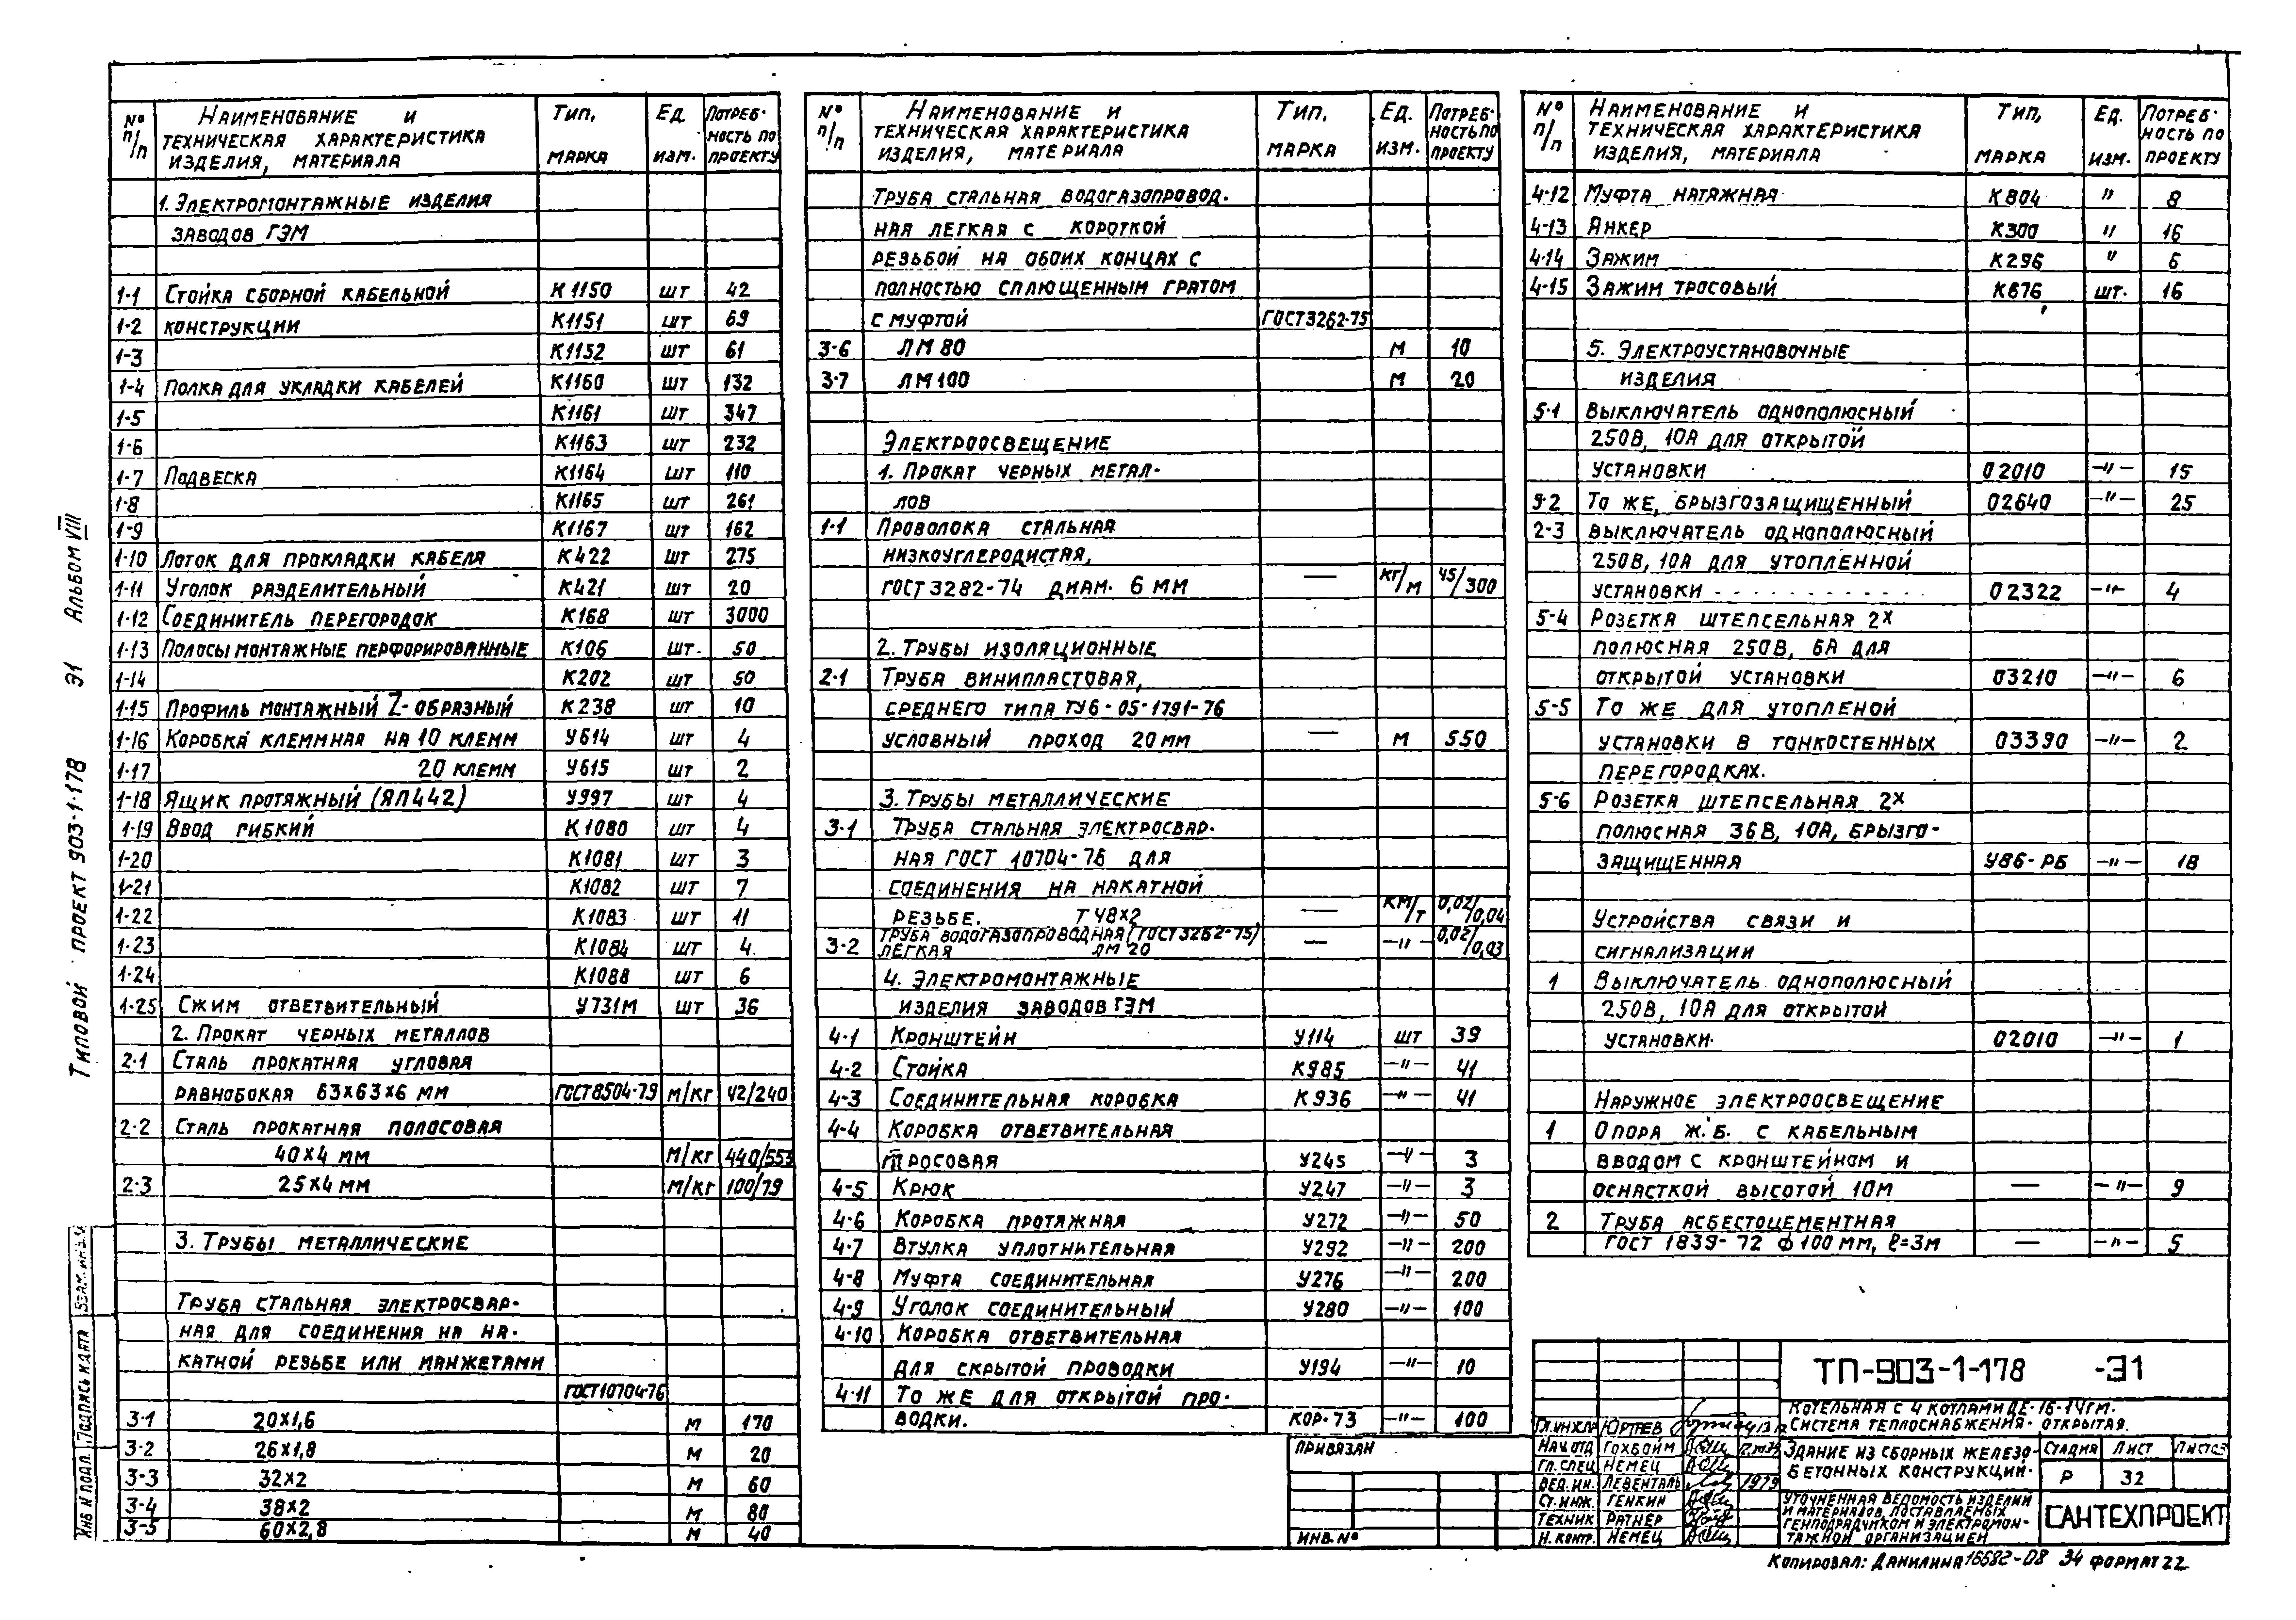 Типовой проект 903-1-178 Э1 Альбом VIII
№ п/п Наименование и техническая характеристика изделия, материала Тип, марка Ед. изм. Потреб-ность по проекту
1. Электромонтажные изделия
заводов ГЭМ
1-1 Стойка сборной кабельной К1150 шт 42
1-2 конструкции К1151 шт 69
1-3 К1152 шт 61
1-4 Полка для укладки кабелей К1160 шт 132
1-5 К1161 шт 347
1-6 К1163 шт 232
1-7 Подвеска К1164 шт 110
1-8 К1165 шт 261
1-9 К1167 шт 162
1-10 Лоток для прокладки кабеля К422 шт 275
1-11 Уголок разделительный К421 шт 20
1-12 Соединитель перегородок К168 шт 3000
1-13 Полосы монтажные перфорированные К106 шт. 50
1-14 К202 шт 50
1-15 Профиль монтажный Z-образный К238 шт 10
1-16 Коробка клеммная на 10 клемм У614 шт 4
1-17 20 клемм У615 шт 2
1-18 Ящик протяжный (ЯП442) У997 шт 4
1-19 Ввод гибкий К1080 шт 4
1-20 К1081 шт 3
1-21 К1082 шт 7
1-22 К1083 шт 11
1-23 К1084 шт 4
1-24 К1088 шт 6
1-25 Сжим ответвительный У731М шт 36
2. Прокат черных металлов
2-1 Сталь прокатная угловая
равнобокая 63х63х6 мм ГОСТ8504-79 м/кг 42/240
2-2 Сталь прокатная полосовая
40х4 мм м/кг 440/553
2-3 25х4 мм м/кг 100/79
3. Трубы металлические
Труба стальная электросвар-
ная для соединения на на-
катной резьбе или манжетами
ГОСТ10704-76
3-1 20х1,6 м 170
3-2 26х1,8 м 20
3-3 32х2 м 60
3-4 38х2 м 80
3-5 60х2,8 м 40
№ п/п Наименование и техническая характеристика изделия, материала Тип, марка Ед. изм. Потреб-ность по проекту
Труба стальная водогазопровод.
ная легкая с короткой
резьбой на обоих концах с
полностью сплющенным гратом
с муфтой ГОСТ3262-75
3-6 ЛМ 80 м 10
3-7 ЛМ 100 м 20
Электроосвещение
1. Прокат черных метал-
лов
1-1 Проволока стальная
низкоуглеродистая,
ГОСТ 3282-74 диам. 6 мм — кг/м 45/300
2. Трубы изоляционные
2-1 Труба винипластовая,
среднего типа ТУ6-05-1791-76
условный проход 20 мм — м 550
3. Трубы металлические
3-1 Труба стальная электросвар-
ная ГОСТ 10704-76 для
соединения на накатной
резьбе. Т 48х2 — км/т 0,02/0,04
3-2 Труба водогазопроводная (ГОСТ3262-75)
легкая ЛМ 20 — —"— 0,02/0,03
4. Электромонтажные
изделия заводов ГЭМ
4-1 Кронштейн У114 шт 39
4-2 Стойка К985 —"— 41
4-3 Соединительная коробка К936 —"— 41
4-4 Коробка ответвительная
тросовая У245 —"— 3
4-5 Крюк У247 —"— 3
4-6 Коробка протяжная У272 —"— 50
4-7 Втулка уплотнительная У292 —"— 200
4-8 Муфта соединительная У276 —"— 200
4-9 Уголок соединительный У280 —"— 100
4-10 Коробка ответвительная
для скрытой проводки У194 —"— 10
4-11 То же для открытой про-
водки. КОР-73 —"— 100
№ п/п Наименование и техническая характеристика изделия, материала Тип, марка Ед. изм. Потреб-ность по проекту
4-12 Муфта натяжная К804 " 8
4-13 Анкер К300 " 16
4-14 Зажим К296 " 6
4-15 Зажим тросовый К676 шт. 16
5. Электроустановочные
изделия
5-1 Выключатель однополюсный
250В, 10А для открытой
установки 02010 —"— 15
5-2 То же, брызгозащищенный 02640 —"— 25
2-3 Выключатель однополюсный
250В, 10А для утопленной
установки 02322 —"— 4
5-4 Розетка штепсельная 2х
полюсная 250В, 6А для
открытой установки 03210 —"— 6
5-5 То же для утопленой
установки в тонкостенных 03390 —"— 2
перегородках.
5-6 Розетка штепсельная 2х
полюсная 36В, 10А, брызго-
защищенная У86-РБ —"— 18
Устройства связи и
сигнализации
1 Выключатель однополюсный
250В, 10А для открытой
установки. 02010 —"— 1
Наружное электроосвещение
1 Опора ж.б. с кабельным
вводом с кронштейном и
оснасткой высотой 10м — —"— 9
2 Труба асбестоцементная
ГОСТ 1839-72 ф 100 мм, ℓ=3м — —"— 5
Взам. инв. №
Подпись и дата
Инв. № подл.
Привязан
Инв. №
ТП-903-1-178 -Э1
Котельная с 4 котлами ДЕ-16-14ГМ.
Система теплоснабжения - открытая.
Гл.инж.пр Юртаев
Нач.отд Гохбойм
Гл. спец Немец
Вед.ин. Левенталь 1979
Ст.инж. Генкин
Техник Ратнер
Н.контр. Немец
Здание из сборных железо-
бетонных конструкций.
Стадия Лист Листов
Р 32
Уточненная ведомость изделий
и материалов, поставляемых
генподрядчиком и электромон-
тажной организацией
САНТЕХПРОЕКТ
Копировал: Данилина 16682-08 34 формат 22